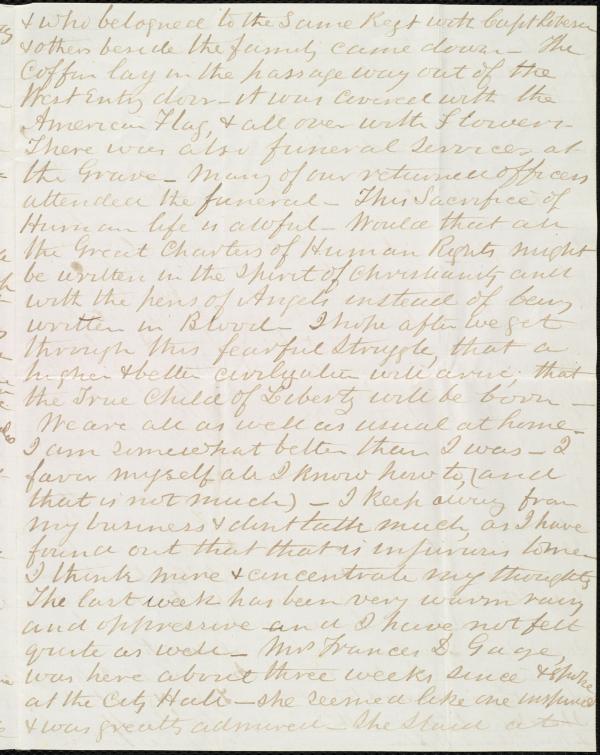 & who belonged to the same Regt with Capt
& others beside the family came down — The
Coffin lay in the passage way out of the
West Entry door — it was covered with the
American Flag, & all over with Flowers —
There was also funeral services at
the Grave — Many of our returned officers
attended the funeral — This Sacrifice of
Human life is awful — Would that all
the Great Charters of Human Rights might
be written in the Spirit of Christianity and
with the pens of Angels instead of being
written in Blood — I hope after we get
through this fearful Struggle, that a
higher & better civilization will arise, that
the True Child of Liberty will be born —
We are all as well as usual at home —
I am somewhat better than I was — I
favor myself all I know how to, (and
that is not much) — I keep away from
my business & dont talk much, as I have
found out that that is injurious to me
I think more & concentrate my thoughts
The last week has been very warm rainy
and oppressive and I have not felt
quite as well — Mrs Frances D. Gage,
was here about three weeks since & spoke
at the City Hall — she seemed like one inspired
& was greatly admired — She staid at